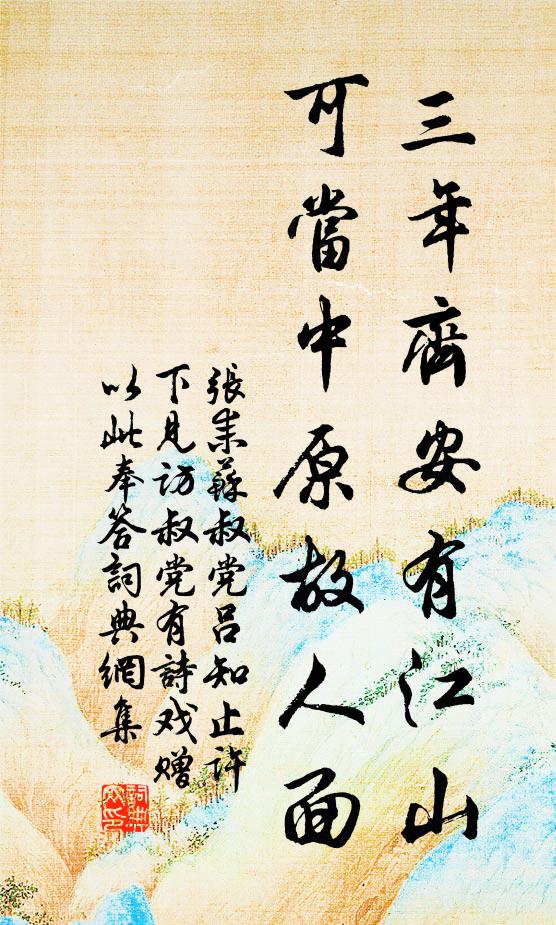 三年齊安有江山
可當中原故人面
張耒蘇叔党呂知止許
下見訪叔党有詩戏赠
以此奉答詞典網集